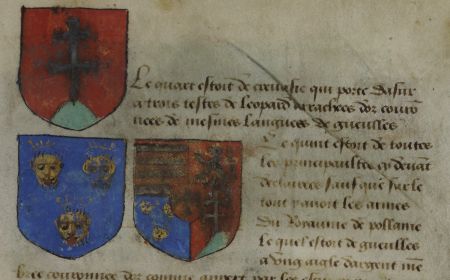 Le quart estoit de croasie qui porte dasur
a trois testes de leopard arachees dor couron
nees de mesmes languees de gueulles
Le quint estoit de toutes
les principaultes cy devant
declairees sauf que sur le
tout avoit les armes
du Royaume de pollame
Le quel estoit de gueulles
a ung aigle dargent me
bree couronnee dor comme